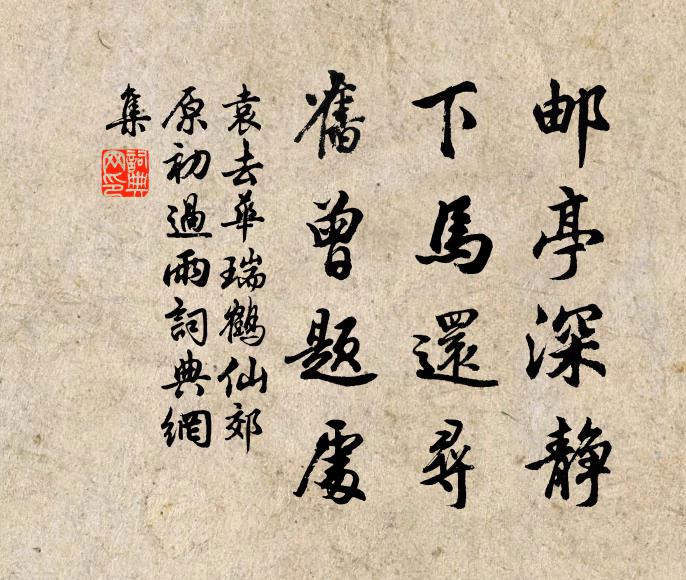 邮亭深静
下馬還尋
舊曾題處
袁去華瑞鶴仙郊
原初過雨詞典網
集
詞典
网印